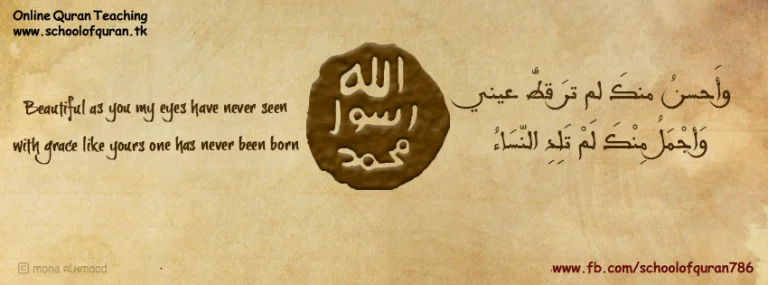 Online Quran Teaching
www.schoolofquran.tk
Beautiful as you my eyes have never seen
with grace like yours one has never been born
الله
رسول
محمد
وأَحسنُ منكَ لم ترَ قطُّ عيني
وَأجْمَلُ مِنْكَ لَمْ تَلِدِ النّسَاءُ
© MONA ALHMOOD
www.fb.com/schoolofquran786